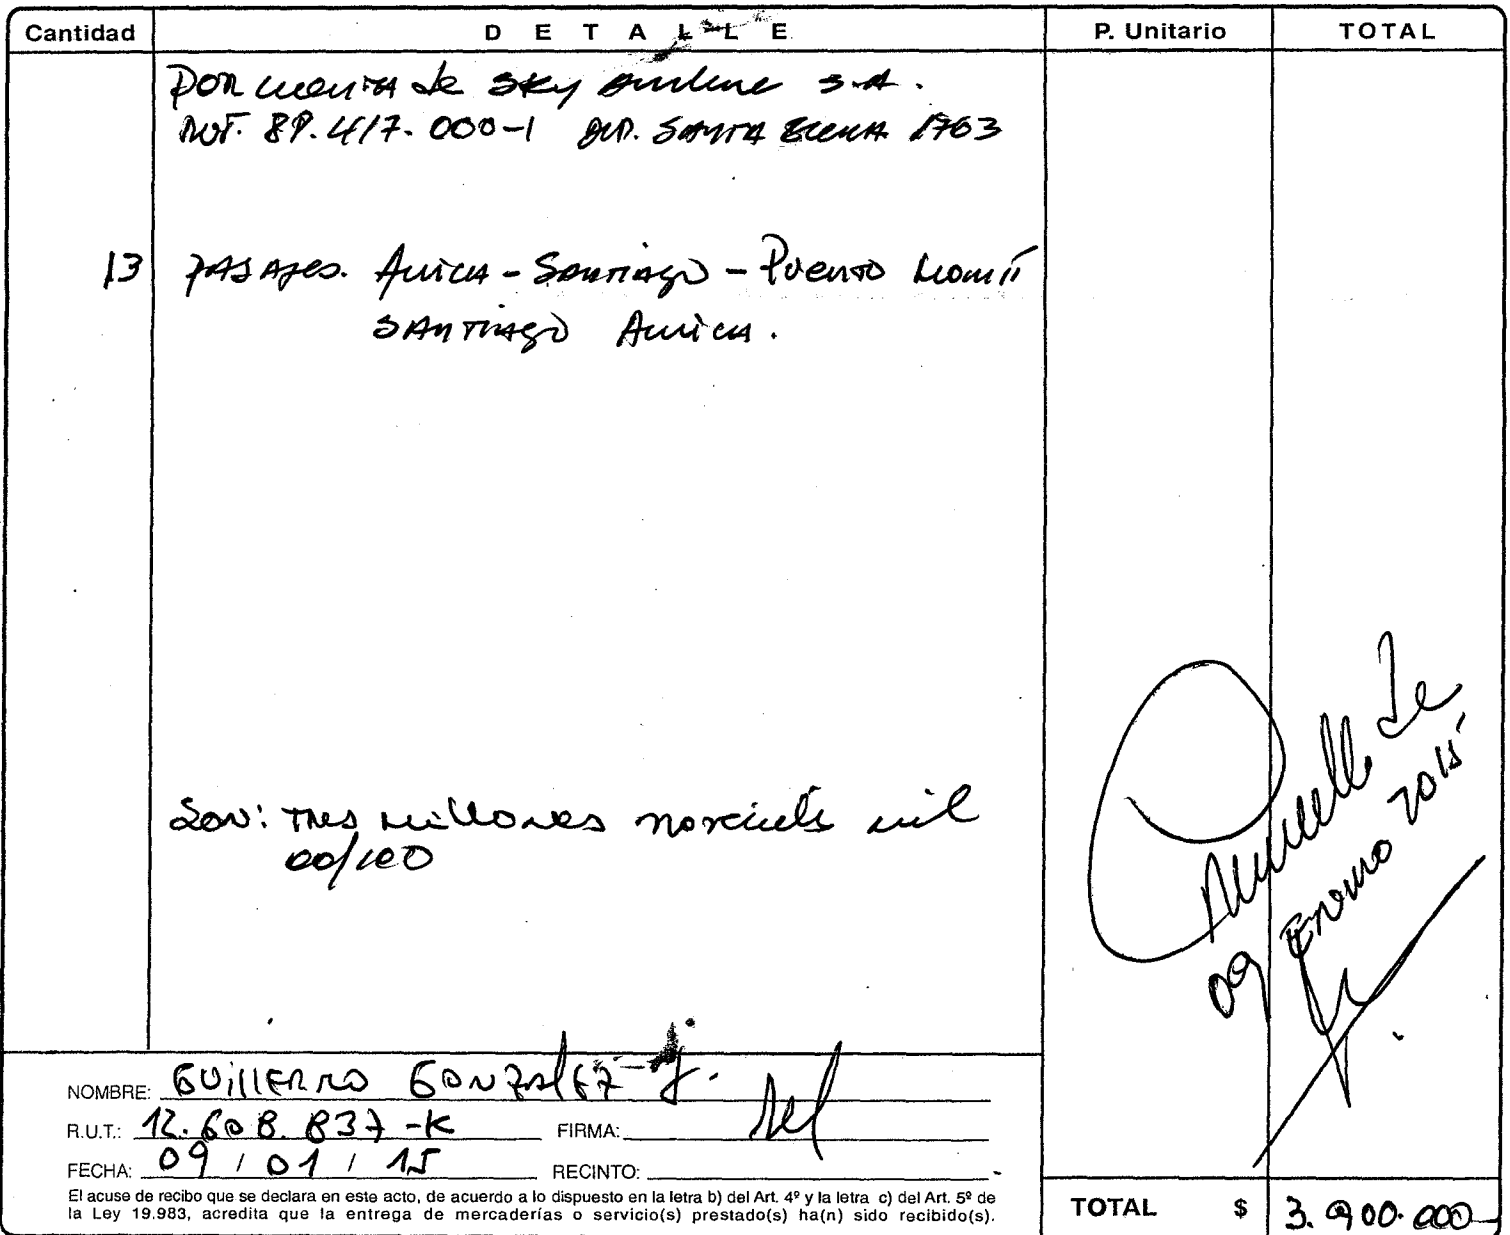 Cantidad DETALLE P. Unitario TOTAL
POR cuenta de SKy Airline S.A.
RUT. 89.417.000-1 DIR. SANTA ELENA 1763
13 PASAJES. Arica - Santiago - Puerto Montt
SANTIAGO Arica.
Son: Tres millones novecientos mil
00/100
de
09 Enero 2015
NOMBRE: GUILLERMO GONZALEZ J.
R.U.T.: 12.608.837-K FIRMA:
FECHA: 09 / 01 / 15 RECINTO:
El acuse de recibo que se declara en este acto, de acuerdo a lo dispuesto en la letra b) del Art. 4º y la letra c) del Art. 5º de
la Ley 19.983, acredita que la entrega de mercaderías o servicio(s) prestado(s) ha(n) sido recibido(s).
TOTAL $ 3.900.000